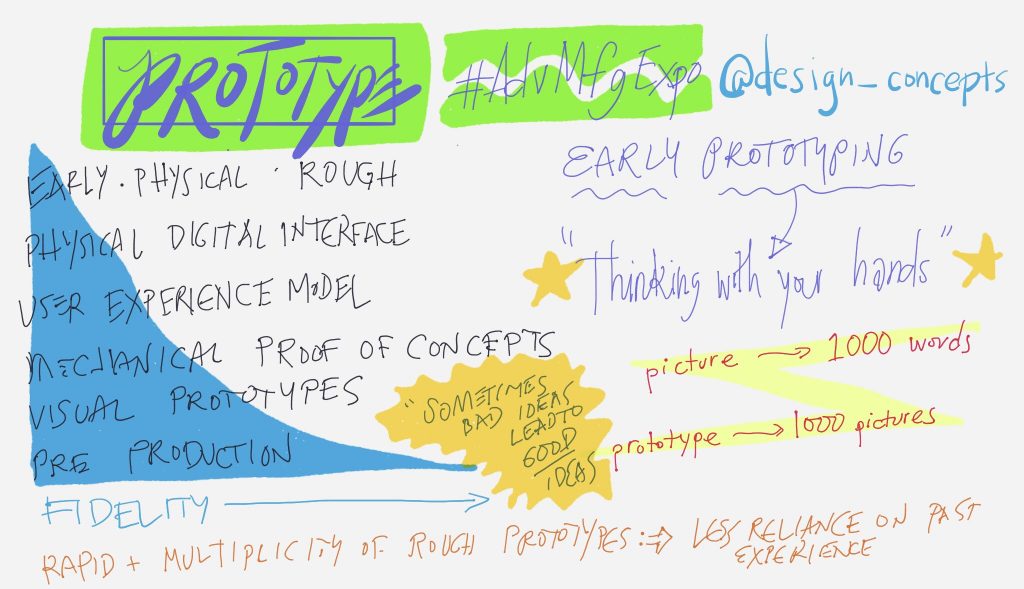 PROTOTYPE
#AdvMfgExpo
@design_concepts
EARLY PROTOTYPING
"Thinking with your hands"
picture → 1000 words
prototype → 1000 pictures
EARLY · PHYSICAL · ROUGH
PHYSICAL DIGITAL INTERFACE
USER EXPERIENCE MODEL
MECHANICAL PROOF OF CONCEPTS
VISUAL PROTOTYPES
PRE PRODUCTION
"SOMETIMES
BAD IDEAS
LEAD TO
GOOD
IDEAS
FIDELITY →
RAPID + MULTIPLICITY OF ROUGH PROTOTYPES :⇒ LESS RELIANCE ON PAST
EXPERIENCE